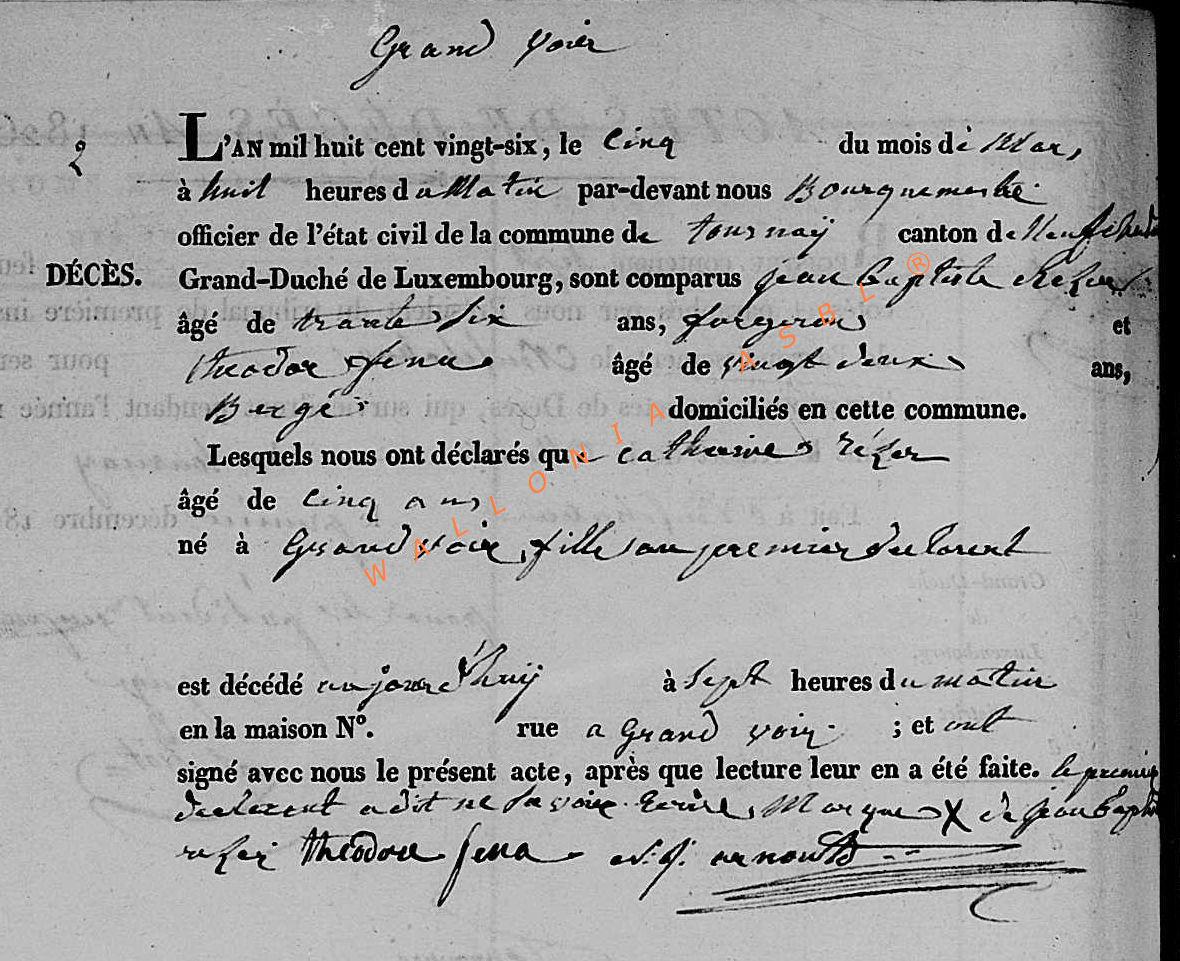 Grand voir
2
L'AN mil huit cent vingt-six, le cinq du mois de Mars
à huit heures du Matin par-devant nous Bourquemestre
officier de l'état civil de la commune de tournay canton de Neufchateau
DÉCÈS. Grand-Duché de Luxembourg, sont comparus jean baptiste
âgé de trante Six ans, forgeron et
theodor fena âgé de vingt deux ans,
Bergér domiciliés en cette commune.
Lesquels nous ont déclarés que catherine rézer
âgé de cinq ans
né à Grand voir, fille au premier declarent
est décédé aujourd'huij à Sept heures du matin
en la maison N°. rue a Grand voir ; et ont
signé avec nous le présent acte, après que lecture leur en a été faite. le premier
declarent a dit ne Savoir Ecrire, Marque X de jean bapti
theodore fena arnould
WALLONIA ASBL ®